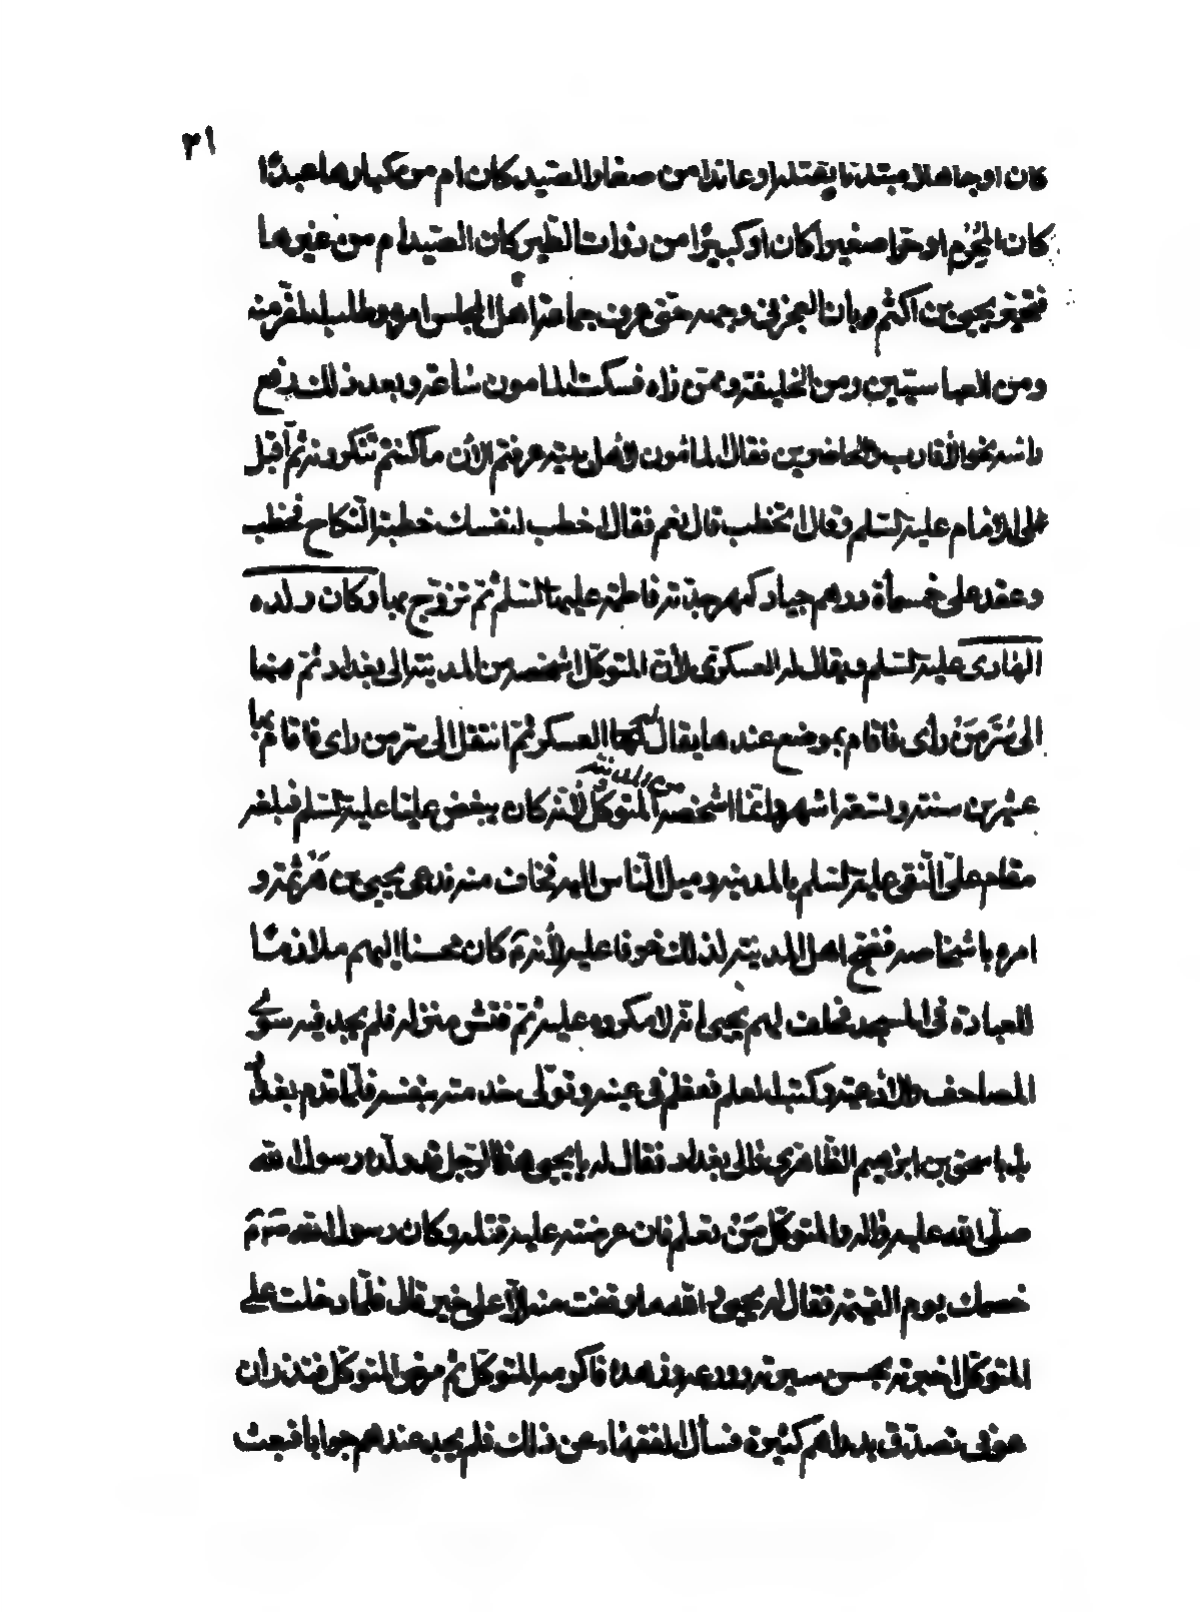 ٣١
كان او جاهلا مبتدئا بقتله او عائدا من صغار الصيد كان ام من كبارها عبدًا
كان المُحْرِم او حرّا صغيرا كان او كبيرًا من ذوات الطّير كان الصّيد ام من غيرها
فتحيّر يحيى بن اكثم وبان العجز فى وجهه حتّى عرف جماعة اهل المجلس امره وطلب المفرّ منه
ومن العباسيّين ومن الخليفة وممّن راه فسكت المامون ساعة وبعد ذلك رفع
راسه نحو الأقارب والحاضرين فقال المأمون لأهل بيته عرفتم الأن ما كنتم تنكرونه ثمّ أقبل
على الإمام عليه السّلم وقال اتخطب قال نعم فقال اخطب لنفسك خطبة النّكاح فخطب
وعقد على خمسمأة درهم جياد كمهر جدّته فاطمة عليها السّلم ثمّ تزوّج بها وكان ولده
الهادى عليه السّلم ويقال له العسكرىّ لأنّ المتوكّل اشخصه من المدينة الى بغداد ثمّ منها
الى سُرَّ مَنْ رأى فاقام بموضع عندها يقال له العسكر ثمّ انتقل الى سرّ من راى فاقام بها
عشرين سنة وتسعة اشهر وانّما اشخصه المتوكّل من المدينة لأنّه كان يبغض عليّا عليه السّلم فبلغه
مقام علىّ النّقى عليه السّلم بالمدينة وميل النّاس اليه فخاف منه فدعى يحيى بن هَرْثمة و
امره باشخاصه فضجّ اهل المدينة لذلك خوفا عليه لأنّه كان محسنا اليهم ملازمًا
للعبادة فى المسجد فحلف لهم يحيى انّه لا مكروه عليه ثمّ فتّش منزله فلم يجد فيه سوى
المصاحف والأدعية وكتب العلم فعظم فى عينه وتولّى خدمته بنفسه فلمّا قدم بغداد
بدا باسحق بن ابرهيم الطّاهرى والى بغداد فقال له يا يحيى هذا الرّجل قد ولّده رسول الله
صلّى الله عليه واله والمتوكّل مَنْ تعلم فان حرضته عليه قتله وكان رسول الله صٓ
خصمك يوم القيمة فقال له يحيى والله ما وقفت منه الّا على خير قال فلمّا دخلت على
المتوكّل اخبرته بحسن سيرته وورعه وزهده فاكرمه المتوكّل ثم مرض المتوكّل فنذر أن
عوفى تصدّق بدراهم كثيرة فسأل الفقهاء عن ذلك فلم يجد عندهم جوابا فبعث